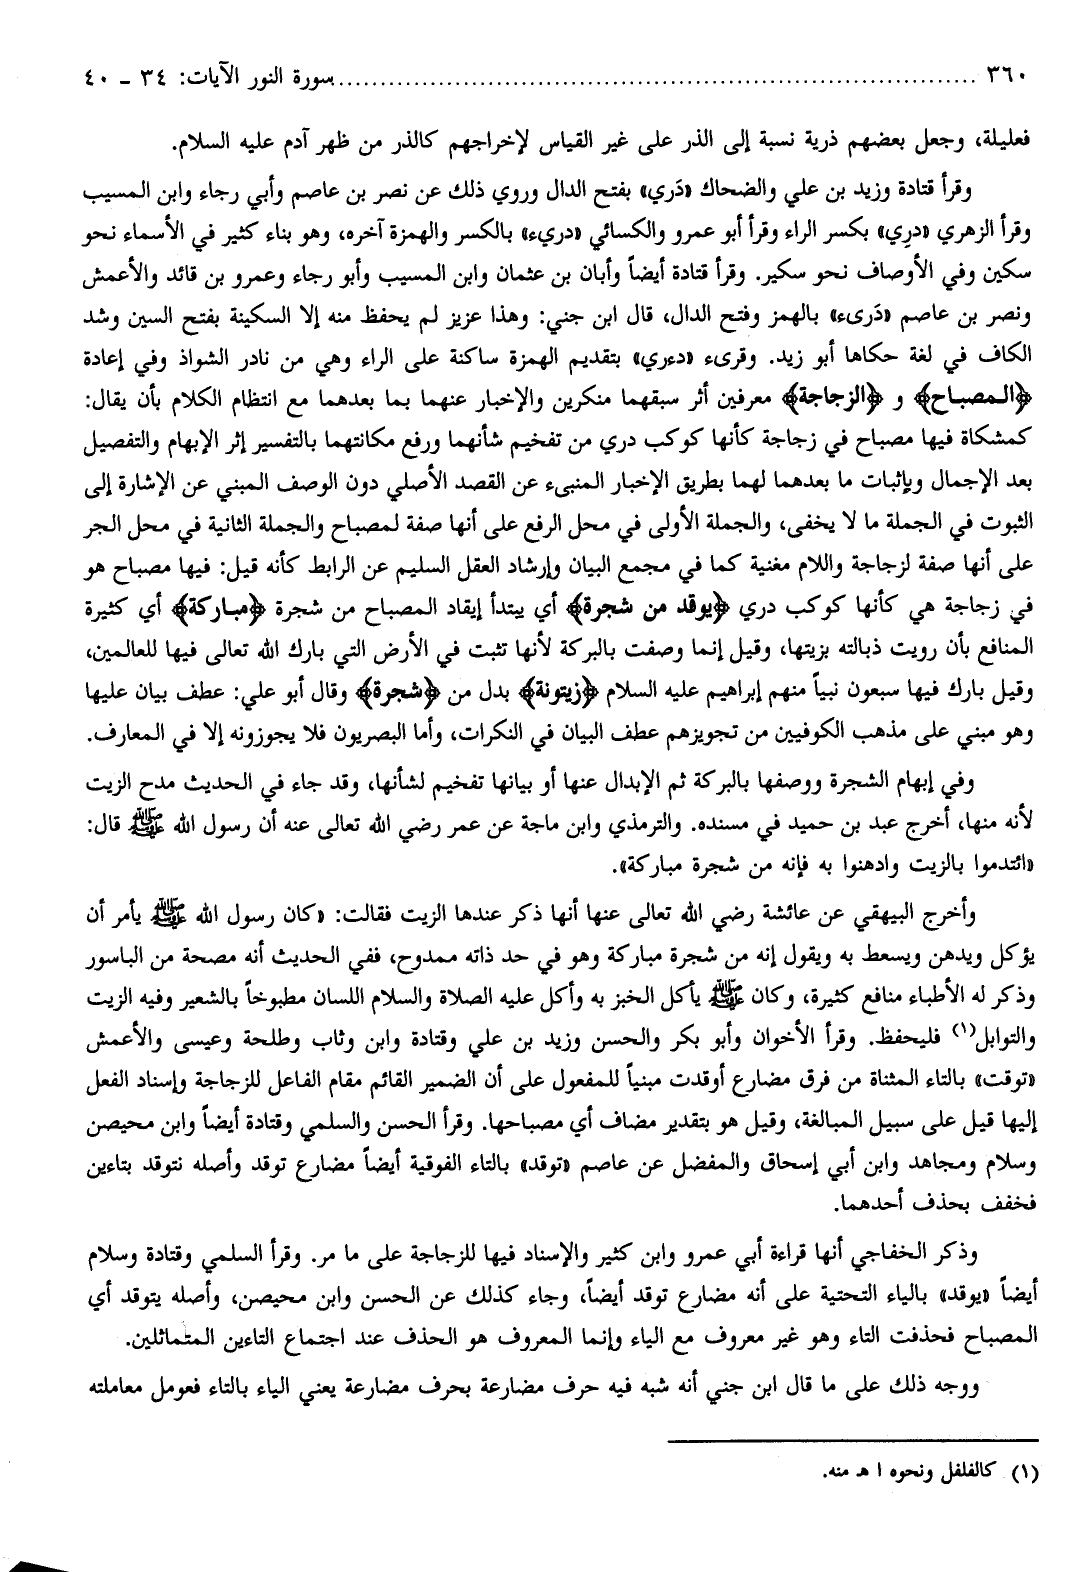 ٣٦٠ ........................................ سورة النور الآيات: ٣٤ ـ ٤٠
فعليلة، وجعل بعضهم ذرية نسبة إلى الذر على غير القياس لإخراجهم كالذر من ظهر آدم عليه السلام.
وقرأ قتادة وزيد بن علي والضحاك «دَري» بفتح الدال وروي ذلك عن نصر بن عاصم وأبي رجاء وابن المسيب
وقرأ الزهري «دِري» بكسر الراء وقرأ أبو عمرو والكسائي «دريء» بالكسر والهمزة آخره، وهو بناء كثير في الأسماء نحو
سكين وفي الأوصاف نحو سكير. وقرأ قتادة أيضاً وأبان بن عثمان وابن المسيب وأبو رجاء وعمرو بن قائد والأعمش
ونصر بن عاصم «دَرىء» بالهمز وفتح الدال، قال ابن جني: وهذا عزيز لم يحفظ منه إلا السكينة بفتح السين وشد
الكاف في لغة حكاها أبو زيد. وقرىء «دءري» بتقديم الهمزة ساكنة على الراء وهي من نادر الشواذ وفي إعادة
﴿المصباح﴾ و ﴿الزجاجة﴾ معرفين أثر سبقهما منكرين والإخبار عنهما بما بعدهما مع انتظام الكلام بأن يقال:
كمشكاة فيها مصباح في زجاجة كأنها كوكب دري من تفخيم شأنهما ورفع مكانتهما بالتفسير إثر الإبهام والتفصيل
بعد الإجمال وبإثبات ما بعدهما لهما بطريق الإخبار المنبىء عن القصد الأصلي دون الوصف المبني عن الإشارة إلى
الثبوت في الجملة ما لا يخفى، والجملة الأولى في محل الرفع على أنها صفة لمصباح والجملة الثانية في محل الجر
على أنها صفة لزجاجة واللام مغنية كما في مجمع البيان وإرشاد العقل السليم عن الرابط كأنه قيل: فيها مصباح هو
في زجاجة هي كأنها كوكب دري ﴿يوقد من شجرة﴾ أي يبتدأ إيقاد المصباح من شجرة ﴿مباركة﴾ أي كثيرة
المنافع بأن رويت ذبالته بزيتها، وقيل إنما وصفت بالبركة لأنها تثبت في الأرض التي بارك الله تعالى فيها للعالمين،
وقيل بارك فيها سبعون نبياً منهم إبراهيم عليه السلام ﴿زيتونة﴾ بدل من ﴿شجرة﴾ وقال أبو علي: عطف بيان عليها
وهو مبني على مذهب الكوفيين من تجويزهم عطف البيان في النكرات، وأما البصريون فلا يجوزونه إلا في المعارف.
وفي إبهام الشجرة ووصفها بالبركة ثم الإبدال عنها أو بيانها تفخيم لشأنها، وقد جاء في الحديث مدح الزيت
لأنه منها، أخرج عبد بن حميد في مسنده. والترمذي وابن ماجة عن عمر رضي الله تعالى عنه أن رسول الله ﷺ قال:
«ائتدموا بالزيت وادهنوا به فإنه من شجرة مباركة».
وأخرج البيهقي عن عائشة رضي الله تعالى عنها أنها ذكر عندها الزيت فقالت: «كان رسول الله ﷺ يأمر أن
يؤكل ويدهن ويسعط به ويقول إنه من شجرة مباركة وهو في حد ذاته ممدوح، ففي الحديث أنه مصحة من الباسور
وذكر له الأطباء منافع كثيرة، وكان ﷺ يأكل الخبز به وأكل عليه الصلاة والسلام اللسان مطبوخاً بالشعير وفيه الزيت
والتوابل(١) فليحفظ. وقرأ الأخوان وأبو بكر والحسن وزيد بن علي وقتادة وابن وثاب وطلحة وعيسى والأعمش
«توقت» بالتاء المثناة من فرق مضارع أوقدت مبنياً للمفعول على أن الضمير القائم مقام الفاعل للزجاجة وإسناد الفعل
إليها قيل على سبيل المبالغة، وقيل هو بتقدير مضاف أي مصباحها. وقرأ الحسن والسلمي وقتادة أيضاً وابن محيصن
وسلام ومجاهد وابن أبي إسحاق والمفضل عن عاصم «توقد» بالتاء الفوقية أيضاً مضارع توقد وأصله نتوقد بتاءين
فخفف بحذف أحدهما.
وذكر الخفاجي أنها قراءة أبي عمرو وابن كثير والإسناد فيها للزجاجة على ما مر. وقرأ السلمي وقتادة وسلام
أيضاً «يوقد» بالياء التحتية على أنه مضارع توقد أيضاً، وجاء كذلك عن الحسن وابن محيصن، وأصله يتوقد أي
المصباح فحذفت التاء وهو غير معروف مع الياء وإنما المعروف هو الحذف عند اجتماع التاءين المتماثلين.
ووجه ذلك على ما قال ابن جني أنه شبه فيه حرف مضارعة بحرف مضارعة يعني الياء بالتاء فعومل معاملته
(١) كالفلفل ونحوه ا هـ منه.